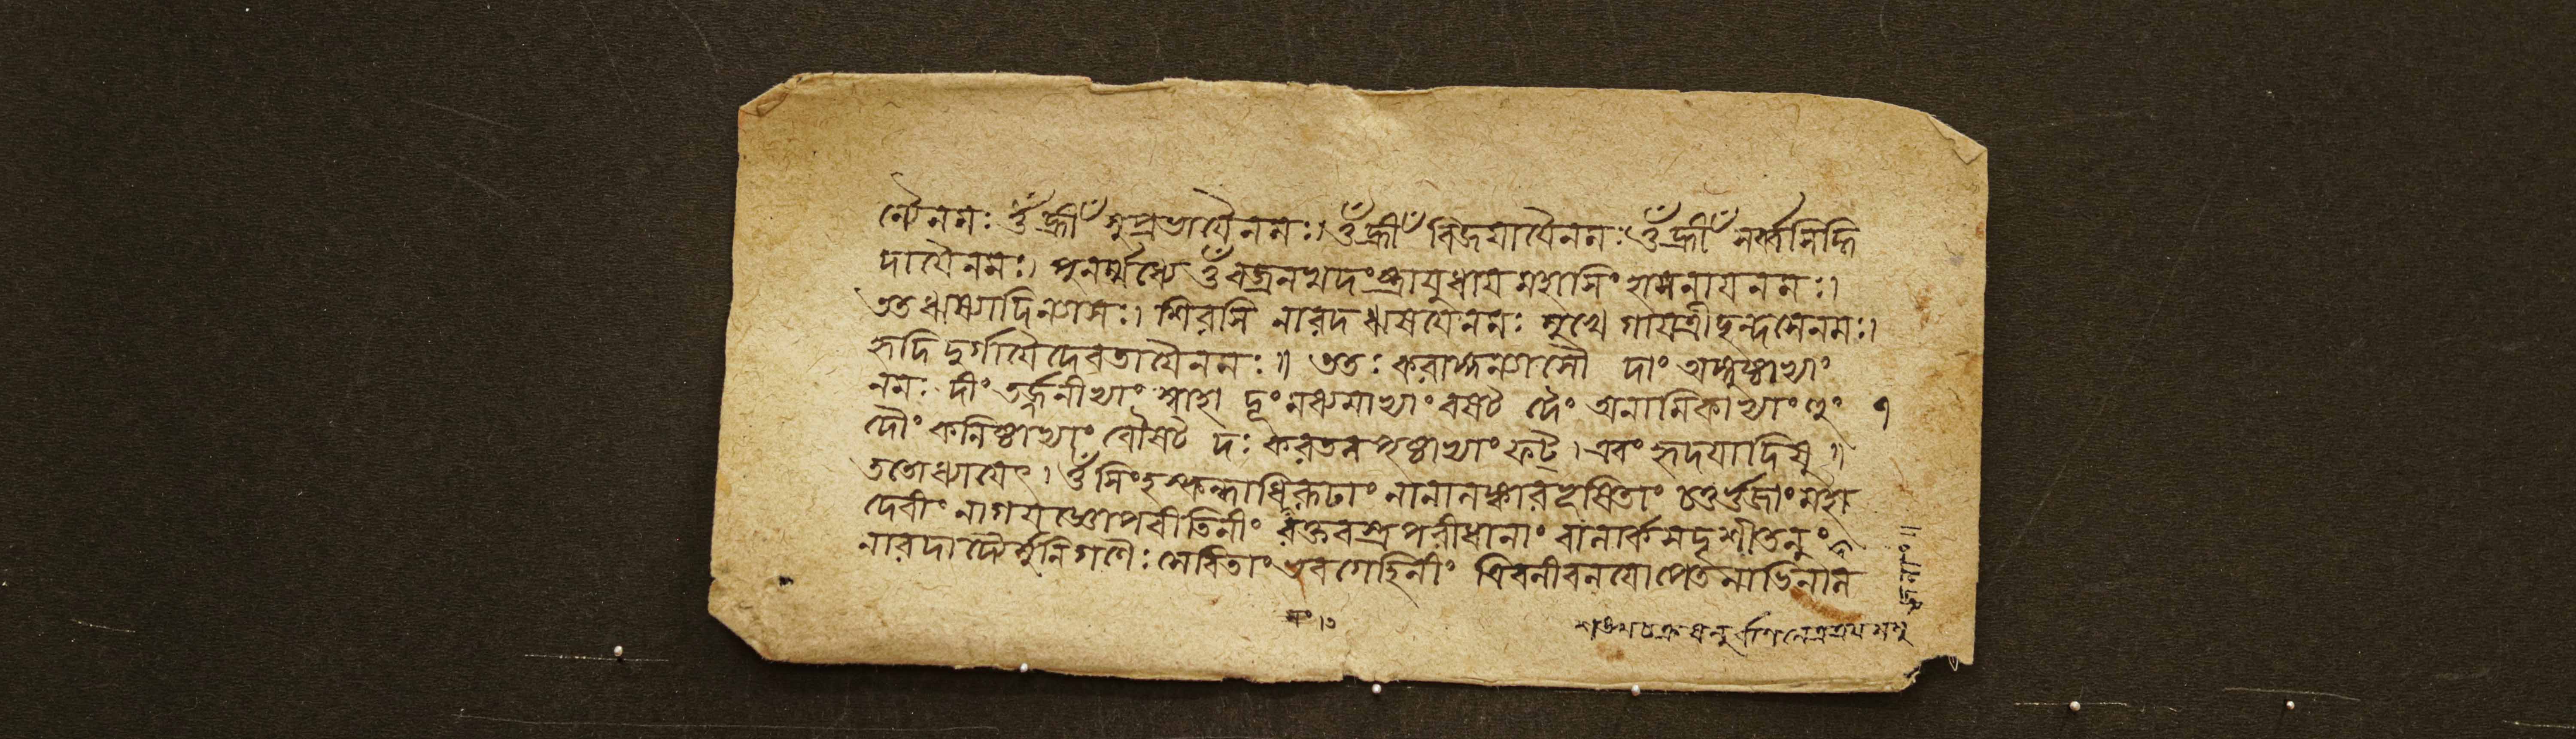 ন্যৈনমঃ ওঁ হ্রীঁ সুপ্রভায়ৈনমঃ। ওঁ হ্রীঁ বিজয়ায়ৈনমঃ ওঁ হ্রীঁ সর্ব্বসিদ্ধি
দায়ৈনমঃ। পুনর্ম্মধ্যে ওঁ বজ্রনখদংষ্ট্রায়ুধায় মহাসিংহাসনায় নমঃ।
তত ঋষ্যাদিন্যাসঃ। শিরসি নারদ ঋষয়েনমঃ মুখে গায়ত্রীছন্দসেনমঃ।
হৃদি দুর্গায়ৈদেবতায়ৈনমঃ॥ ততঃ করাঙ্গন্যাসৌ দাং অঙ্গুষ্ঠাভ্যাং
নমঃ দীং তর্জ্জনীভ্যাং স্বাহা দূং মধ্যমাভ্যাং বষট্ দৈং অনামিকাভ্যাং হুং
দৌং কনিষ্ঠাভ্যাং বৌষট্ দঃ করতলপৃষ্ঠাভ্যাং ফট্। এবং হৃদয়াদিষু॥
ততোধ্যায়েৎ। ওঁ সিংহস্কন্ধাধিরূঢাং নানালঙ্কারভূষিতাং চতুর্ভুজাং মহা
দেবীং নাগযজ্ঞোপবীতিনীং রক্তবস্ত্রপরীধানাং বালার্কসদৃশীতনুং
নারদাদ্যৈর্মুনিগণৈঃ সেবিতাং ভবগেহিনীং ত্রিবলীবলয়োপেতনাভিনাল